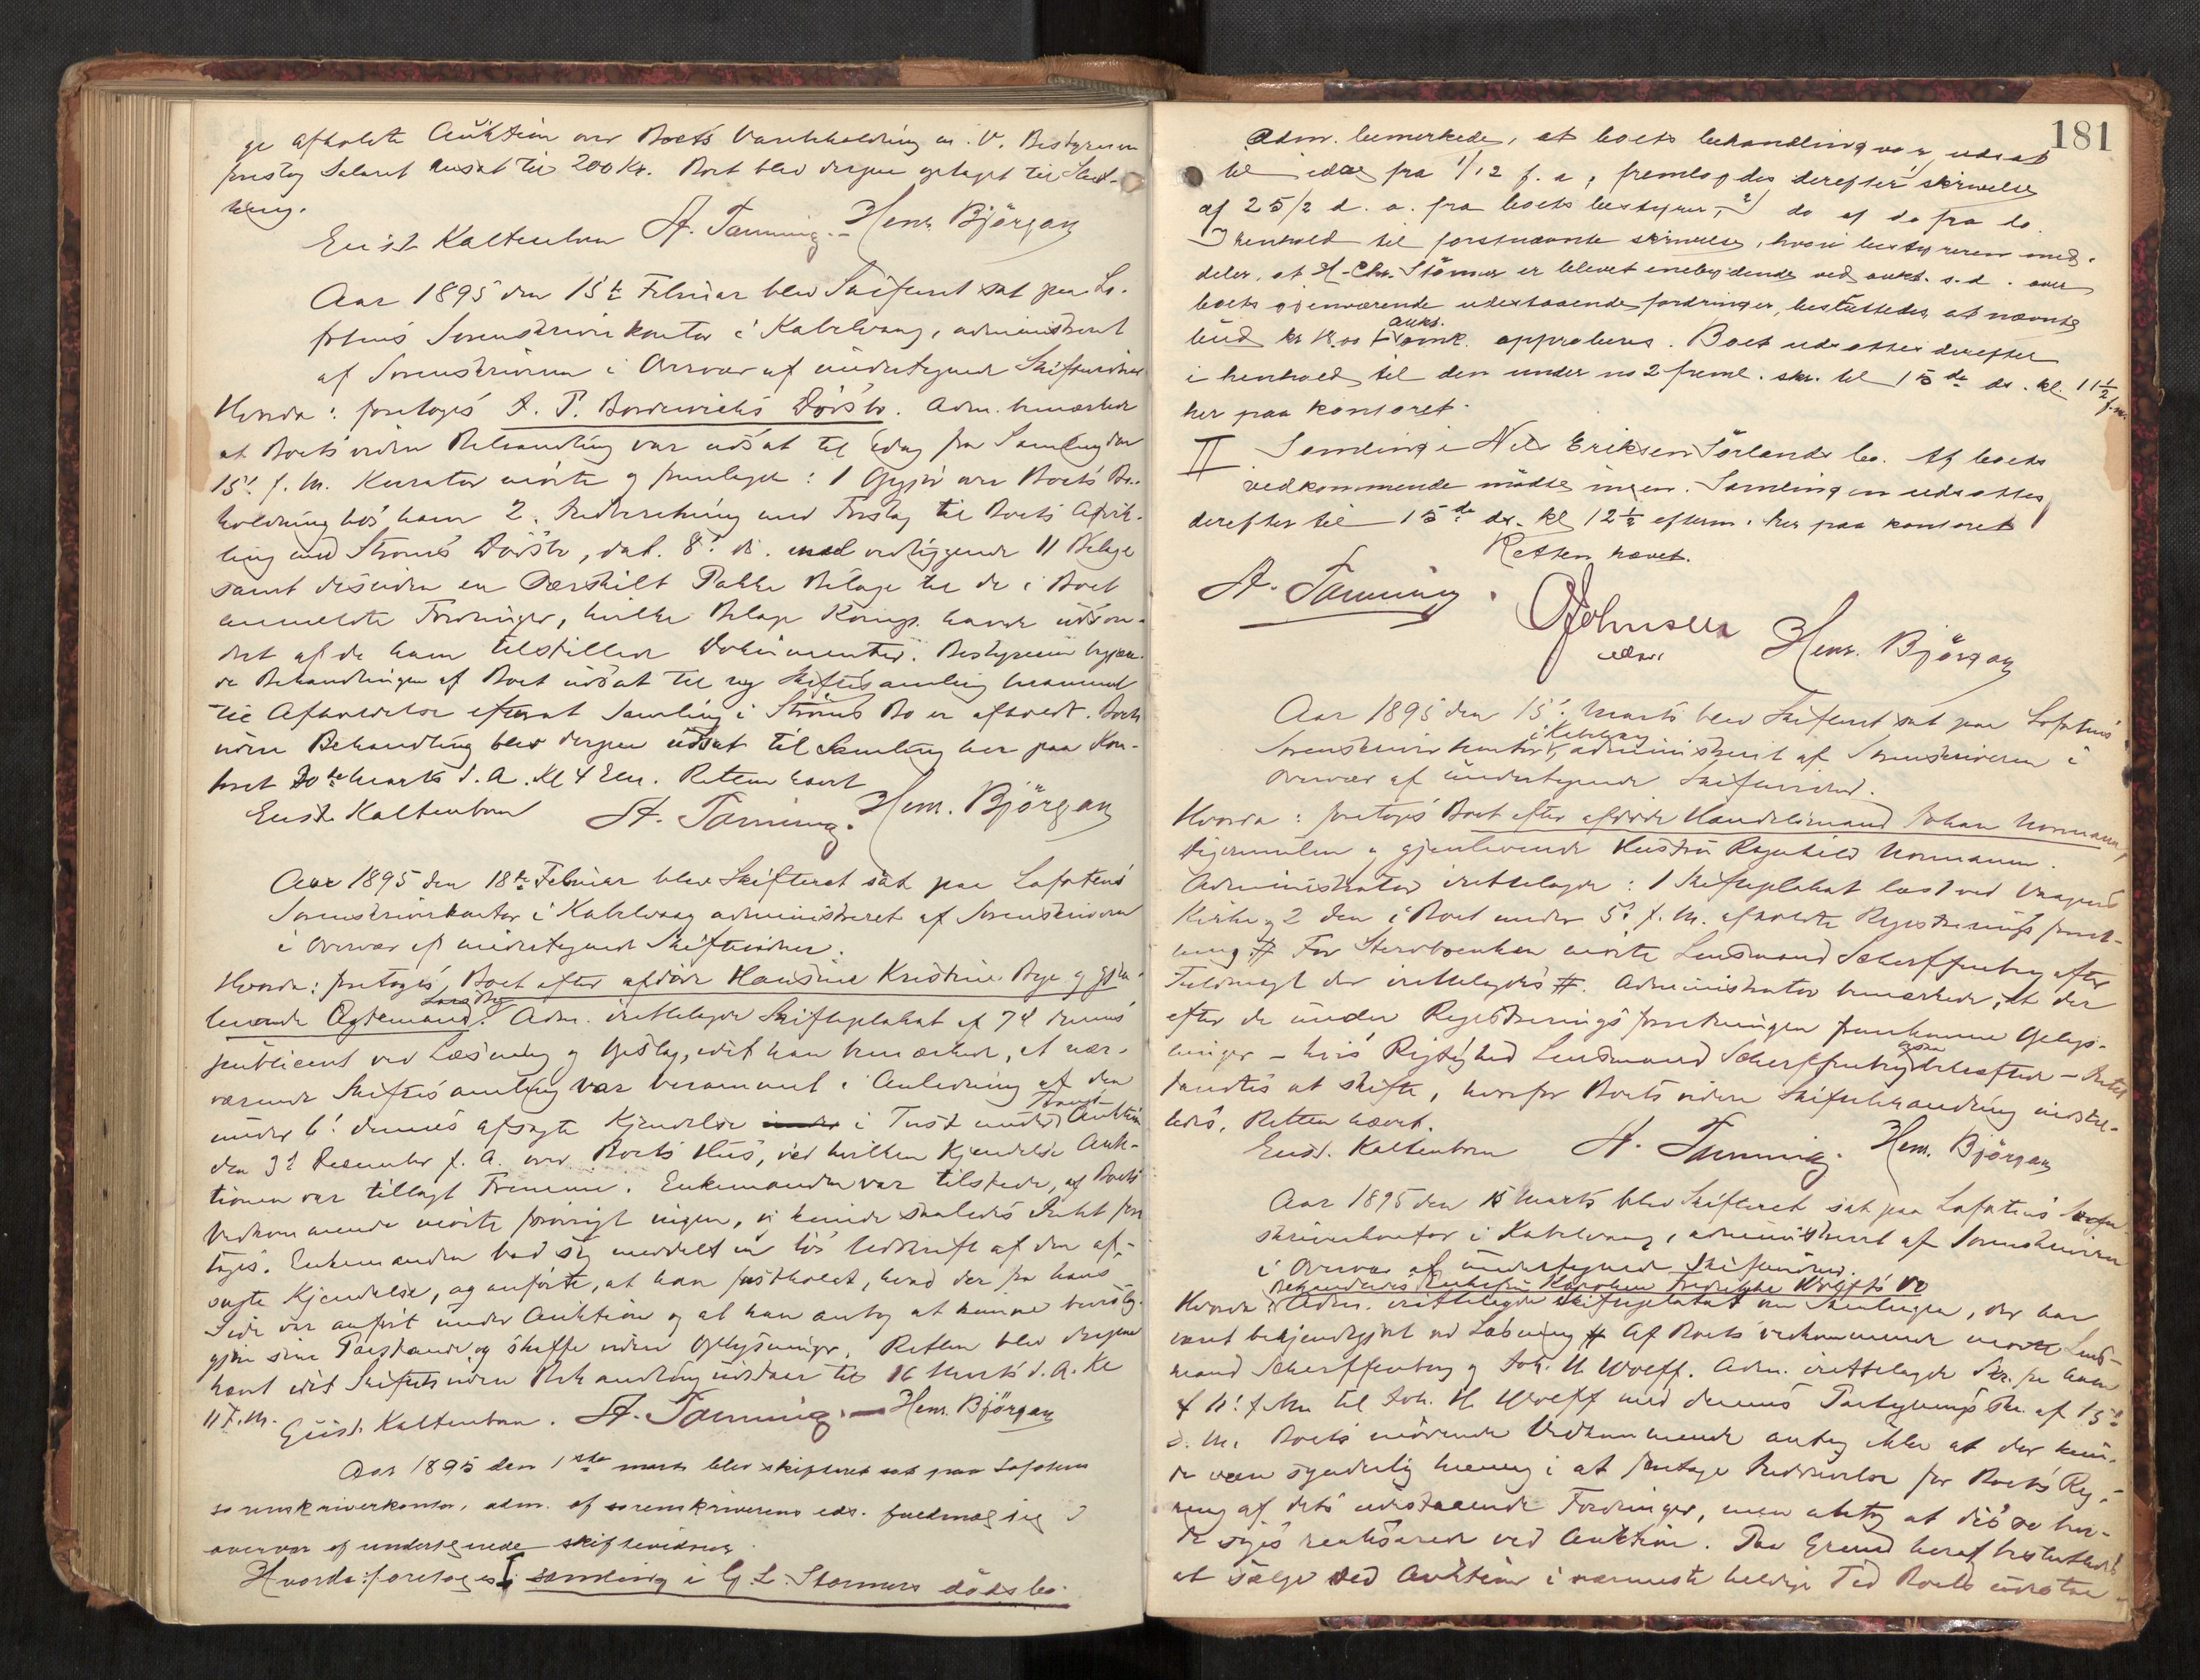 ge afholdte Auktion over Boets Varebeholdning m. V. Bestyreren
foreslog Salæret ansat til 200 Kr. Boet blev derpaa optaget til Slut-
ning.
Eust. Kaltenborn A. Tanning. Henr. Björgan
Aar 1895 den 15de Februar blev Skifteret sat paa Lo-
fotens Sorenskriverkontor i Kabelvaag, administreret
af Sorenskriveren i Overvær af undertegnede Skiftevidner
Hvorda: foretoges J. P. Borderwichs Dödsbo. Adm. bemærkede
at Boets videre Behandling var udsat til idag fra Samling den
15de f. M. Kurator mödte og fremlagde: 1 Opgjör over Boets Be-
holdning hos ham 2. Indberetning med Forslag til Boets Afvik-
ling med Ströms Dödsbo, dat. 8de ds. med vedliggende 11 Bilage
samt desuden en særskilt Pakke Bilage til de i Boet
anmeldte Fordringer, hvilke Bilage Komp. havde udson-
dret af de ham tilstillede Dokumenter. Bestyreren begjæ-
de Behandlingen af Boet udsat til ny Skiftesamling berammet
til Afholdelse efterat Samling i Ströms Bo er afholdt. Boets
videre Behandling blev derpaa udsat til Samling her paa Kon-
toret 20de Marts d. A. Kl 4 Em. Retten hævet
Eust. Kaltenborn A. Tanning. Henr. Björgan
Aar 1895 den 18de Februar blev Skifteret sat paa Lofotens
Sorenskriverkontor i Kabelvaag administreret af Sorenskriveren
i Overvær af undertegnede Skiftevidner.
Hvorda: foretoges Boet efter afdöde Hansine Kristine Bye og gjen-
levende Ægtemand. Adm. irettelagde Skifteplakat af 7de dennes
publiceret ved Læsning og Opslag, idet han bemærkede, at nær-
værende Skiftesamling var berammet i Anledning af den
under 6te dennes afsagte Kjendelse i Tvist under Tvangs Auktion
den 31 December f. A. over Boets Hus, ved hvilken Kjendelse Auk-
tionen var tillagt Fremme. Enkemanden var tilstede, af Boets
Vedkommende mödte forövrigt ingen, og kunde saaledes Intet fore-
tages. Enkemanden bad sig meddelt en lös Udskrift af den af-
sagte Kjendelse, og anförte, at han fastholdt, hvad der fra hans
Side var anfört under Auktion og at han antog at kunne bevislig-
gjöre sine Paastande og skaffe videre Oplysninger. Retten blev derpaa
hævet idet Skiftets videre Behandling udstaar til 16 Marts d. A. Kl
11 F.M. Eust. Kaltenborn. A. Tanning. Henr. Björgan
Aar 1895 den 1ste marts blev skifteret sat paa Lofotens
sorenskriverkontor, adm. af sorenskriverens eds. fuldmægtig i
overvær af undertegnede skiftevidner
Hvorda: foretoges I samling i G. L. Stormers dödsbo.
181
Adm. bemerkede, at boets behandling var udsat
til idag fra 1/12 f. a, fremlagdes derefter skrivelse
af 25/2 d. a. fra boets bestyrer, 2) do af do fra do.
I henhold til förstnævnte skrivelse, hvori bestyreren med-
deler, at H. Chr. Störmer er blevet enebydende ved aukt. s.d. over
boets gjenværende udestaaende fordringer, besluttedes at nævnte
bud kr 18.00 + aukt. omk. approberes. Boet udsattes derefter
i henhold til den under no 2 freml. skr. til 15de ds. kl. 11½ f.m.
her paa kontoret.
II Samling i Nils Eriksen Sörlands bo. Af boets
vedkommende mödte ingen. Samlingen udsattes
derefter til 15de ds. kl 12½ efterm. her paa kontoret
Retten hævet.
A. Tanning. O Johnsen edsv. Henr. Björgan
Aar 1895 den 15de Marts blev Skifteret sat paa Lofotens
Sorenskriverkontor i Kabelvaag, administreret af Sorenskriveren i
Overvær af undertegnede Skiftevidner.
Hvorda: foretoges Boet efter afdöde Handelsmand Johan Normann,
Digermulen og gjenlevende Hustru Ragnhild Normann.
Administrator irettelagde: 1 Skifteplakat læst ved Vaagens
Kirke og 2 den i Boet under 5te f. M. afholdte Registreringsforret-
ning. # For Sterboenken mödte Lensmand Scherffenberg efter
Fuldmagt der irettelagdes #. Administrator bemærkede, at der
efter de under Registreringsforretningen fremkomne Oplys-
ninger – hvis Rigtighed Lensmand Scherffenberg ogsaa bekræftede – Intet
fandtes at skifte, hvorfor Boets videre Skiftebehandling indstil-
ledes. Retten hævet.
Eust. Kaltenborn A. Tanning. Henr. Björgan
Aar 1895 den 15 Marts blev Skifteret sat paa Lofotens Soren-
skriverkontor i Kabelvaag, administreret af Sorenskriveren
i Overvær af undertegnede Skiftevidner.
Behandledes Enkefru Karoline Fredrikke Wolffs Bo
Hvorda: Adm. irettelagde Skifteplakat om Samlingen, der har
været bekjendtgjort ved Læsning # Af Boets vedkommende mödte Lens-
mand Scherffenberg og Joh. H. Wolff. Adm. irettelagde Skr. fra ham
af f. M. til Joh. H. Wolff med dennes Paategnings Skr. af 15de
d. M. Boets mödende Vedkommende antog ikke at der kun-
de være synderlig Mening i at foretage Inddrivelse for Boets Reg-
ning af dets udestaaende Fordringer, men antog at disse bur-
de söges realiserede ved Auktion. Paa Grund heraf besluttedes
at sælge ved Auktion i nærmeste heldige Tid Boets udestaa-